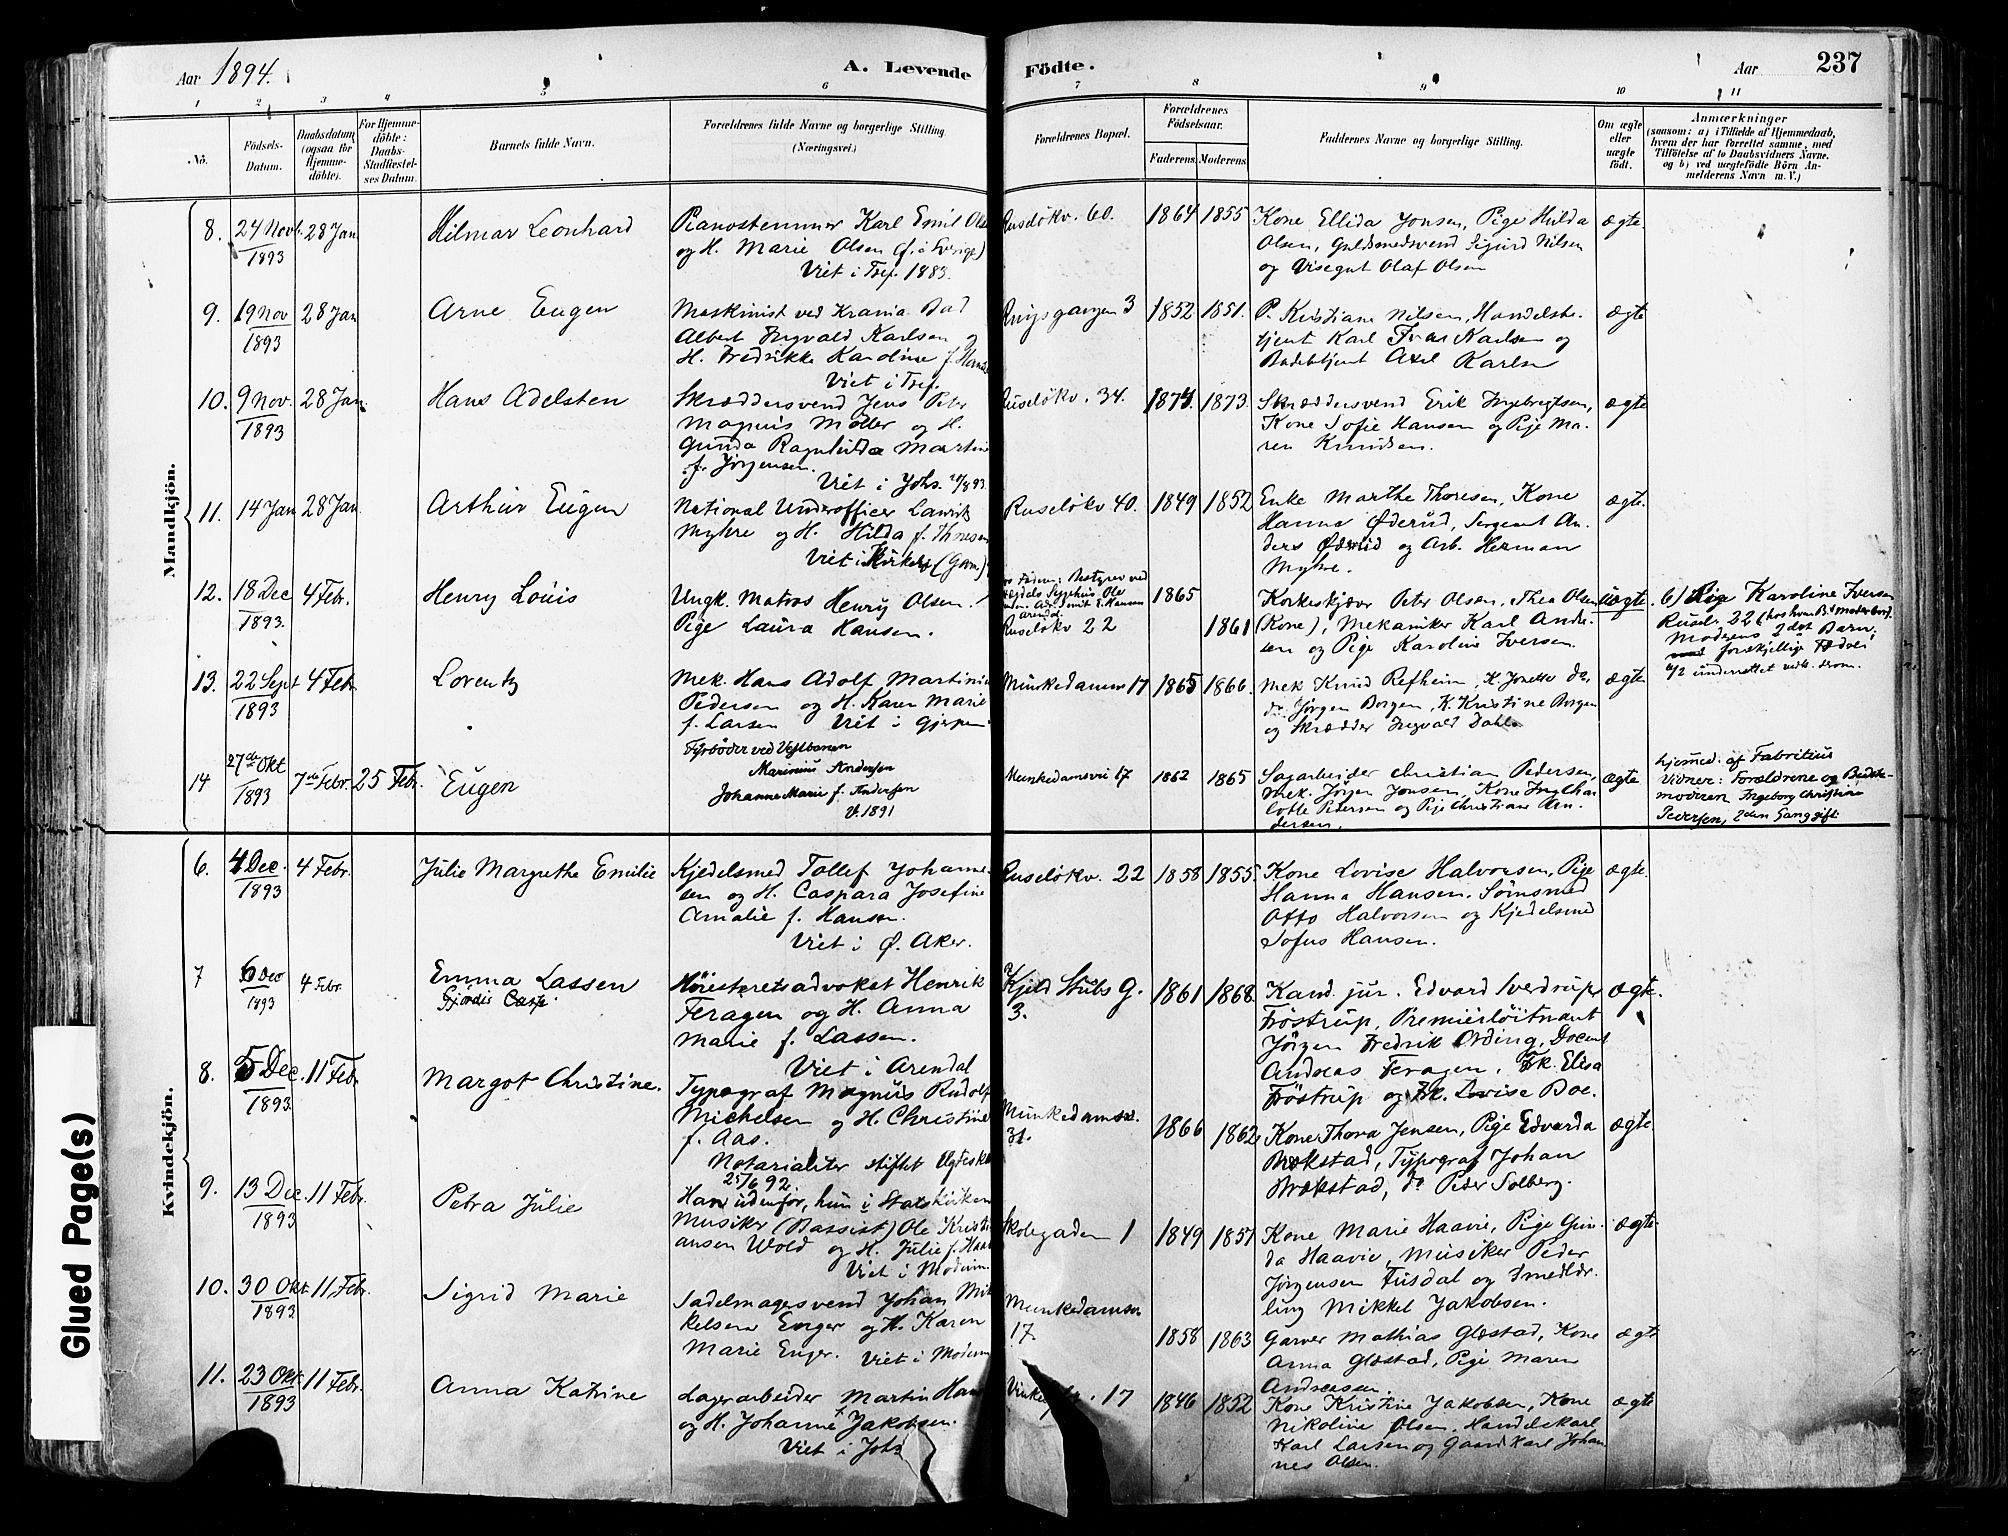 Aar 1894.
A. Levende Födte.
Aar 237
1 2 3 4 5 6 7 8 9 10 11
No.
Födsels-Datum.
Daabsdatum (ogsaa for Hjemmedöbte).
For Hjemmedöbte: Daabs-Stadfæstelses Datum.
Barnets fulde Navn.
Forældrenes fulde Navne og borgerlige Stilling.
(Næringsvei.)
Forældrenes Bopæl.
Forældrenes Födselsaar.
Faderens. Moderens.
Faddernes Navne og borgerlige Stilling.
Om ægte eller uægte födt.
Anmærkninger
(saasom: a) i Tilfælde af Hjemmedaab,
hvem der har forrettet samme, med
Tilföielse af to Daabsvidners Navne,
og b) ved uægtefödte Börn An-
melderens Navn m. V.)
Mandkjön.
8. 24 Nov. 1893 28 Jan. Hilmar Leonhard
Pianostemmer Karl Emil Olsen
og H. Marie Olsen (f. i Sverige)
Viet i Tref. 1883.
Ruseløkv. 60. 1864 1855
Kone Ellida Jonsen, Pige Hulda
Olsen, Guldsmedsvend Sigurd Nilsen
og Visegut Olaf Olsen
ægte.
9. 19 Nov 1893 28 Jan Arne Eugen
Maskinist ved Krania Bad
Albert Ingvald Karlsen og
H. Fredrikke Karoline f.
Viet i Tref.
Ringsgangen 3 1852 1851.
P. Kristiane Nilsen, Handelsbe-
tjent Karl Karlsen og
Badebetjent Axel Karlsen
ægte
10. 9 Nov. 1893 28 Jan. Hans Adelsten
Skræddersvend Jens Peter
Magnus Møller og H.
Gunda Ragnhilda Martine
f. Jørgensen.
Viet i Johs.
Ruseløkv. 34. 1874. 1873.
Skræddersvend Erik Ingebregtsen,
Kone Sofie Hansen og Pige Ma-
ren Knudsen.
ægte
11. 14 Jan 28 Jan. Arthur Eugen
National Underofficer Laurits
Myhre og H. Hilda f. Thoresen
Viet i
Ruseløkv 40. 1849 1852
Enke Marthe Thoresen, Kone
Hanna Øderud, Sergeant An-
ders Øderud og Arb. Herman
Myhre.
ægte.
12. 18 Dec 1893. 4 Febr. Henry Louis
Ungk. Matros Henry Olsen.
Pige Laura Hansen.
Ruseløkv 22 1865 1861
Korkeskjær Peter Olsen, Thea Olsen
(Kone), Mekaniker Karl Ande-
sen og Pige Karoline Iversen.
uægte.
b) Pige Karoline Iversen
Rusel. 22 (hos hvem B. & Moder bor).
Moderens 2det Barn,
forskjellige Fædre
13. 22 Sept 1893 4 Febr Lorentz
Mek. Hans Adolf Martinius
Pedersen og H. Karen Marie
f. Larsen Viet i Gjerpen
Munkedamsv 17 1865 1866.
Mek Knud Refheim, H. Josette do,
do. Jörgen Borgen, K. Kristine Borgen
og Skrædder Ingvald Dahl
ægte
14 27de Okt 1893 7de Febr. 25 Febr. Eugen
Fyrbøder ved Vestbanen
Marinius Andersen
Johanne Marie f. Andersen
V. 1891
Munkedamsvei 17 1862 1865
Sagarbeider Christian Pedersen,
Mek. Jörgen Jonsen, Kone Ing Char-
lotte Pedersen og Pige Christiane An-
dersen.
ægte
hjemmed. af Fabritius
Vidner: Forældrene og Bedste-
moderen Ingeborg Christine
Pedersen, 2den Gang gift.
Kvindekjön.
6. 4 Dec. 1893 4 Febr. Julie Margrethe Emilie
Kjedelsmed Tollef Johanne-
sen og H. Caspara Josefine
Amalie f. Hansen.
Viet i Ø. Aker.
Ruseløkv. 22 1858 1855.
Kone Lovise Halvorsen, Pige
Hanna Hansen, Sømsmed
Otto Halvorsen og Kjedelsmed
Sofus Hansen.
ægte.
7 6 Dec 1893 4 Febr. Emma Lassen
Gjördis
Høiesteretsadvokat Henrik
Feragen og H. Anna
Marie f. Lassen.
Viet i Arendal
Kjeld Stubs G. 3. 1861 1868.
Kand. jur. Edvard Sverdrup
Frøstrup, Premierløitnant
Jørgen Fredrik Ording, Docent
Andreas Feragen, Frk. Elisa
Frøstrup og Frk. Lovise Boe.
ægte.
8. 5 Dec. 1893. 11 Febr. Margot Christine.
Typograf Magnus Rudolf
Michelsen og H. Christine
f. Aas.
Notarialiter stiftet Ægtesk.
25/6 92.
Han udenfor, hun i Statskirken
Munkedamsv. 31. 1866 1862
Kone Thora Jensen, Pige Edvarda
Brækstad, Typograf Johan
Brækstad, do Peder Solberg.
ægte.
9. 13 Dec. 1893 11 Febr. Petra Julie
Musiker (Bassist) Ole Kristi-
ansen Wold og H. Julie f. Haavie
Viet i Modum
Skolegaden 1 1849 1857
Kone Marie Haavie, Pige Gun-
da Haavie, Musiker Peder
Jørgensen Fusdal og Smedlær-
ling Mikkel Jakobsen.
ægte.
10. 30 Okt. 1893 11 Febr. Sigrid Marie
Sadelmagersvend Johan Mik-
kelsen Enger og H. Karen
Marie Enger. Viet i Modum
Munkedamsv 17. 1858 1863
Garver Mathias Glæstad, Kone
Anna Glæstad, Pige Maren
Andreassen.
ægte
11. 23 Okt. 1893 11 Febr. Anna Katrine
Lagerarbeider Martin Hans
og H. Johanne f. Jakobsen.
Viet i Johs
17 1846 1852
Kone Kristine Jakobsen, Kone
Nikoline Olsen, Handelskarl
Karl Larsen og Gaardskarl Johan-
nes Olsen.
ægte
Glued Page(s)